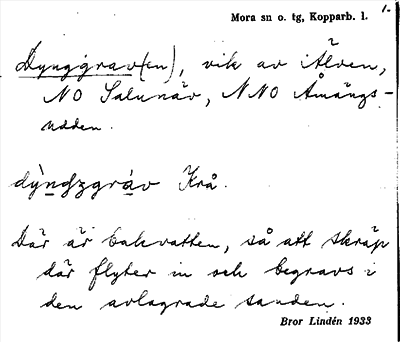 Mora sn o. tg, Kopparb. l.
1.
Dynggrav(en), vik av Älven,
NO Salunäv, NNO Åmängs-
udden.
Krå.
Där är bakvatten, så att skräp
där flyter in och begravs i
den avlagrade sanden.
Bror Lindén 1933